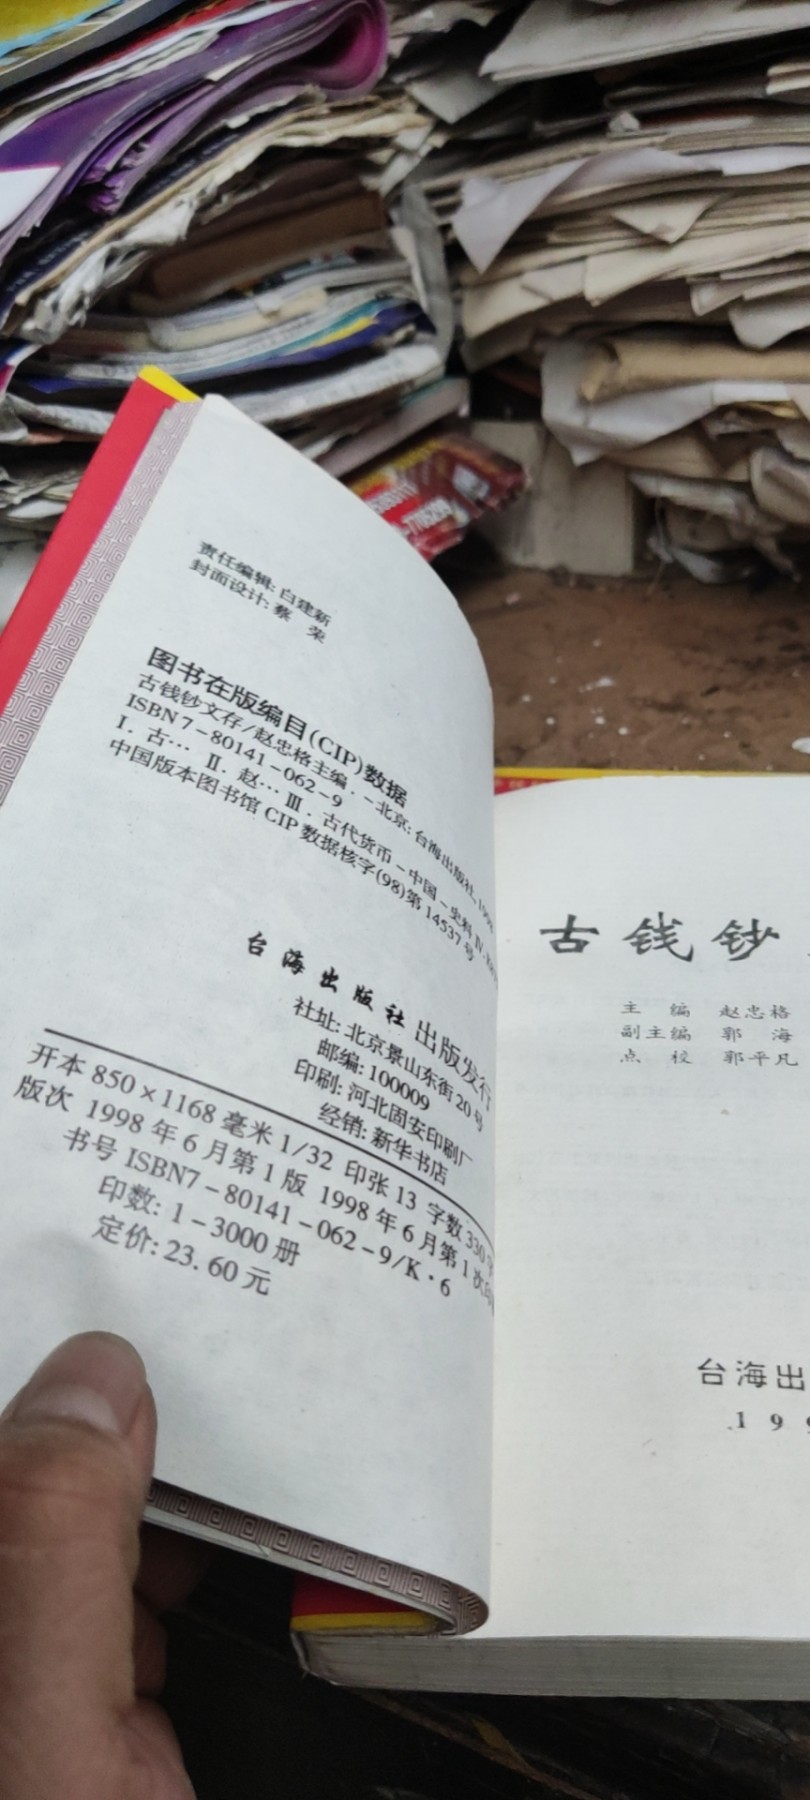 责任编辑: 白建新
封面设计: 蔡 荣
图书在版编目(CIP)数据
古钱钞文存/赵忠格主编.-北京:台海出版社,1998
ISBN 7-80141-062-9
Ⅰ.古… Ⅱ.赵… Ⅲ.古代货币-中国-史料 Ⅳ.
中国版本图书馆 CIP 数据核字(98)第 14537 号
台海出版社 出版发行
社址: 北京景山东街 20 号
邮编: 100009
印刷: 河北固安印刷厂
经销: 新华书店
开本 850×1168 毫米 1/32 印张 13 字数 330
版次 1998 年 6 月第 1 版 1998 年 6 月第 1 次印
书号 ISBN7-80141-062-9/K·6
印数: 1-3000 册
定价: 23.60 元
古钱钞
主 编 赵忠格
副主编 郭 海
点 校 郭平凡
台海出
199